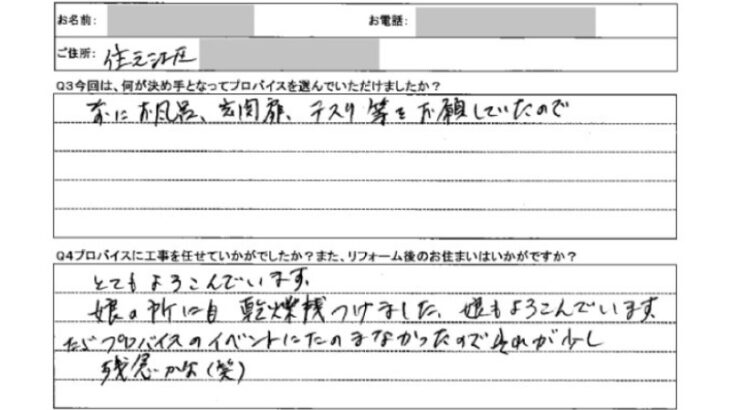 お名前: お電話:
ご住所: 住之江区
Q3今回は、何が決め手となってプロバイスを選んでいただけましたか?
前にお風呂、玄関扉、手スリ等をお願していたので
Q4プロバイスに工事を任せていかがでしたか?また、リフォーム後のお住まいはいかがですか?
とてもよろこんでいます。
娘の所にも 乾燥機つけました、娘もよろこんでいます
ただプロバイスのイベントにたのまなかったのでそれが少し
残念かな(笑)